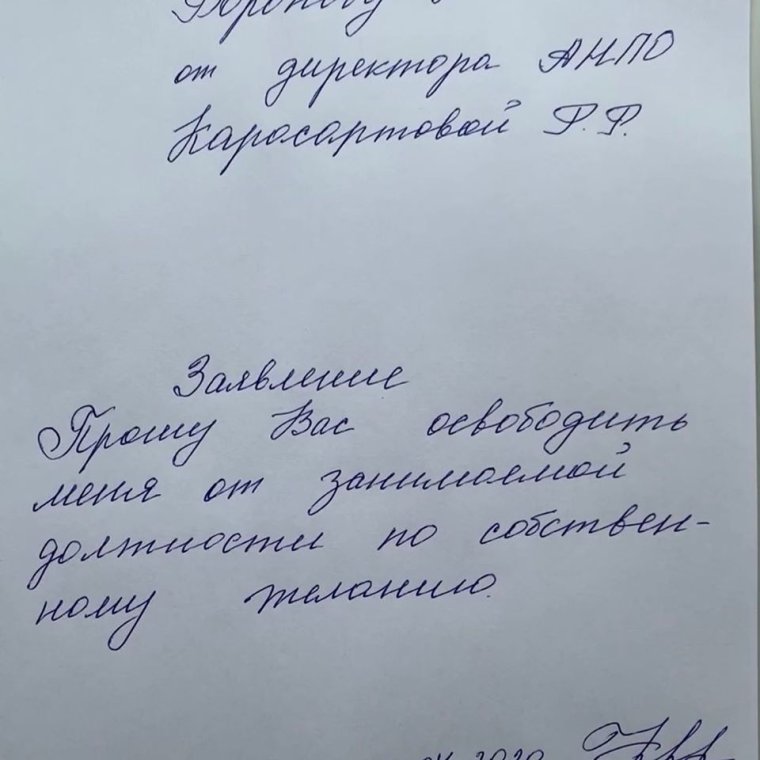 от директора АНПО
Карасартовой Р.Р.
Заявление
Прошу Вас освободить
меня от занимаемой
должности по собствен-
ному желанию.
2020